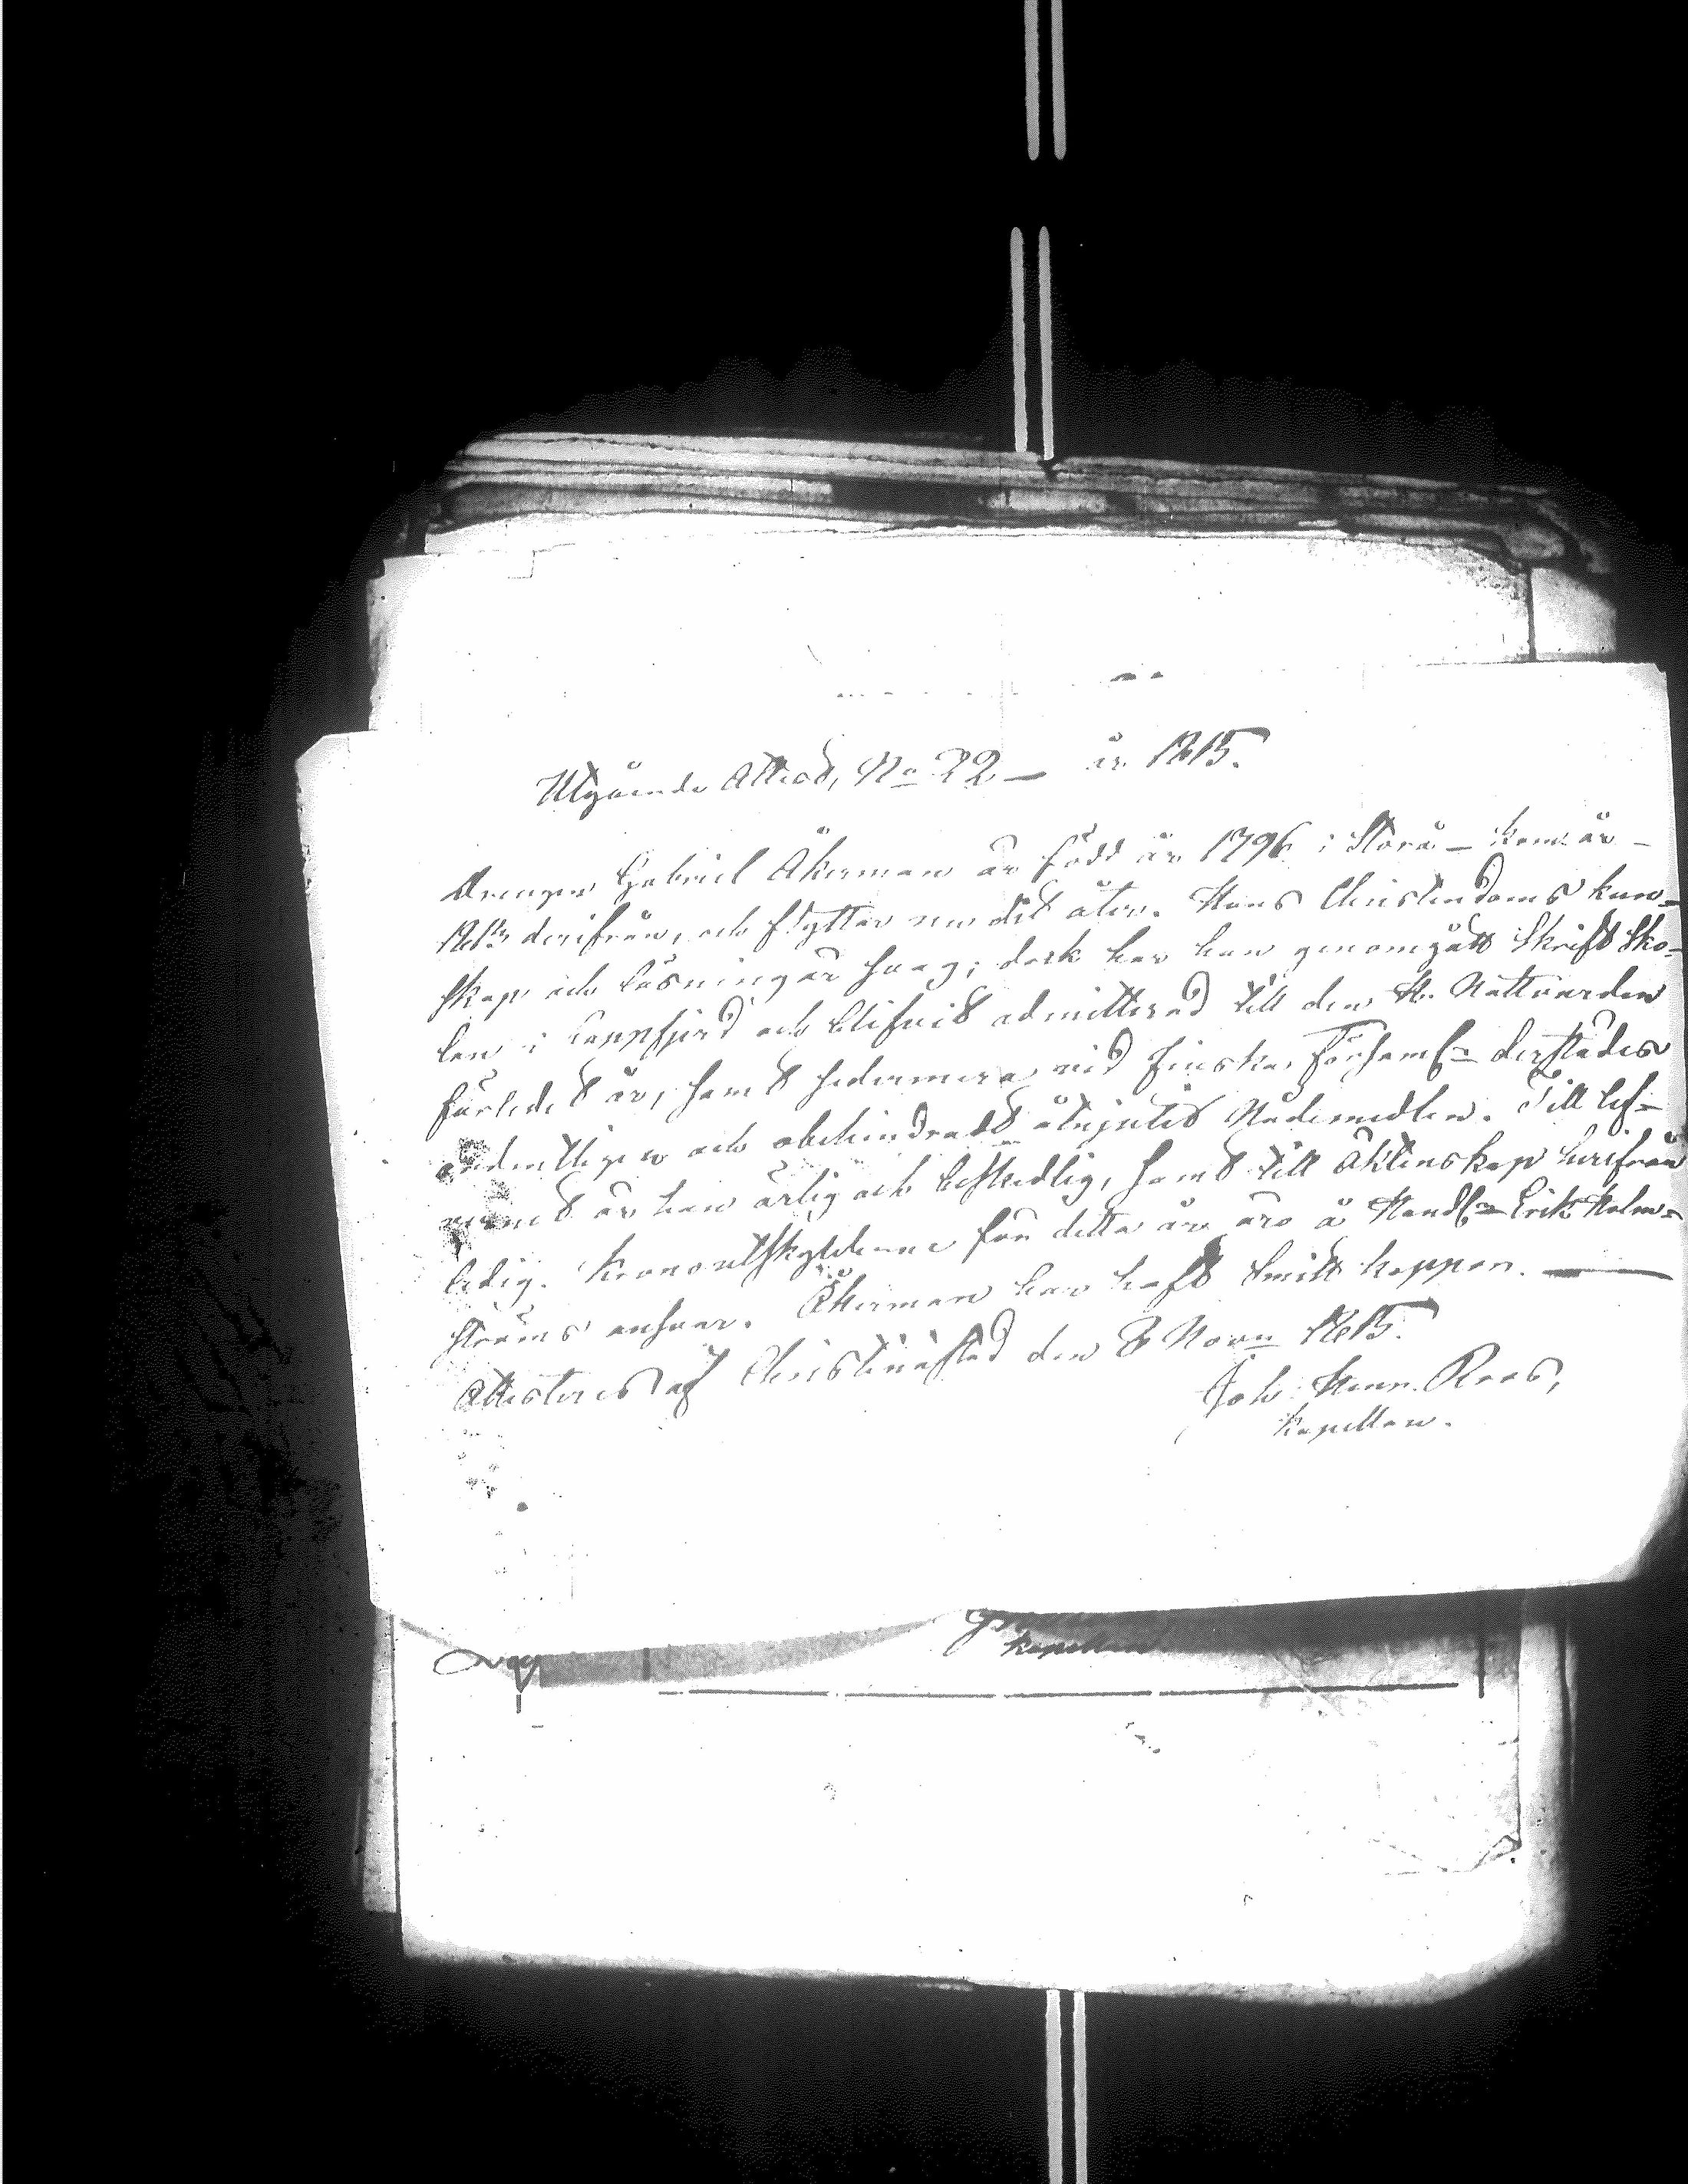 Utgående Attest, No 22 — år 1815.
Drengen Gabriel Åkerman är född år 1796 i Storå — kom år
1813 derifrån, och flyttar nu dit åter. Hans Christendoms kun-
skap och läsning är svag; dock har han genomgått Skrift Sko-
lan i Lappfjerd och blifvit admitterad till den H. Nattvarden
förledet år, samt sedermera vid Finska Församln derstädes
ordentligen och obehindradt åtnjutit Nådemedlen. Till lef-
vernet är han ärlig och beskedlig, samt till Äktenskap härifrån
ledig. Kronoutskylderne för detta år äro å Handln Erik Holm-
ströms ansvar. Åkerman har haft Smittkoppor. —
Attesteras af Christinæstad den 8 Novr 1815.
Joh: Henr. Roos,
Kapellan.
Kapellan